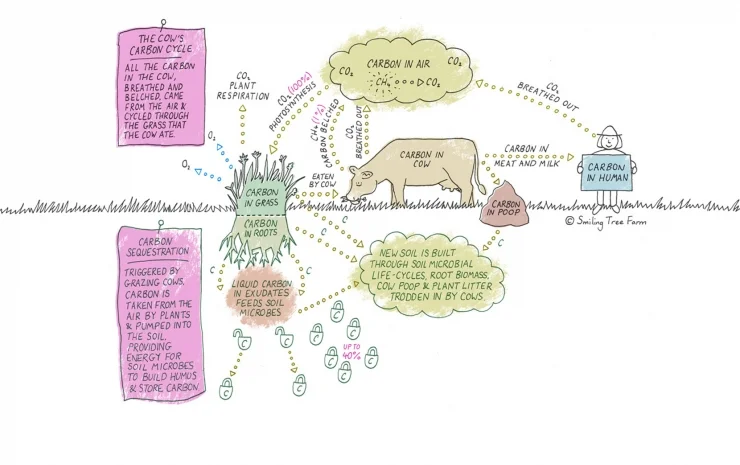 THE COW'S
CARBON CYCLE
ALL THE CARBON
IN THE COW,
BREATHED AND
BELCHED, CAME
FROM THE AIR &
CYCLED THROUGH
THE GRASS THAT
THE COW ATE.
CO₂
PLANT
RESPIRATION
O₂
O₂
CO₂ (100%)
PHOTOSYNTHESIS
CH₄ (1%)
CARBON BELCHED
CO₂
BREATHED OUT
CARBON IN AIR
CO₂
CO₂
CH₄ CO₂
CO₂
BREATHED OUT
CARBON IN
COW
EATEN
BY COW
CARBON IN
MEAT AND MILK
CARBON
IN HUMAN
CARBON
IN GRASS
CARBON
IN ROOTS
CARBON
IN POOP
© Smiling Tree Farm
CARBON
SEQUESTRATION
TRIGGERED BY
GRAZING COWS,
CARBON IS
TAKEN FROM THE
AIR BY PLANTS
& PUMPED INTO
THE SOIL.
PROVIDING
ENERGY FOR
SOIL MICROBES
TO BUILD HUMUS
& STORE CARBON.
C
C
C
C
C
C
LIQUID CARBON
IN EXUDATES
FEEDS SOIL
MICROBES
NEW SOIL IS BUILT
THROUGH SOIL MICROBIAL
LIFE-CYCLES, ROOT BIOMASS,
COW POOP & PLANT LITTER
TRODDEN IN BY COWS.
C
C
C
C
C
C
C
C
C
C
UP TO
40%